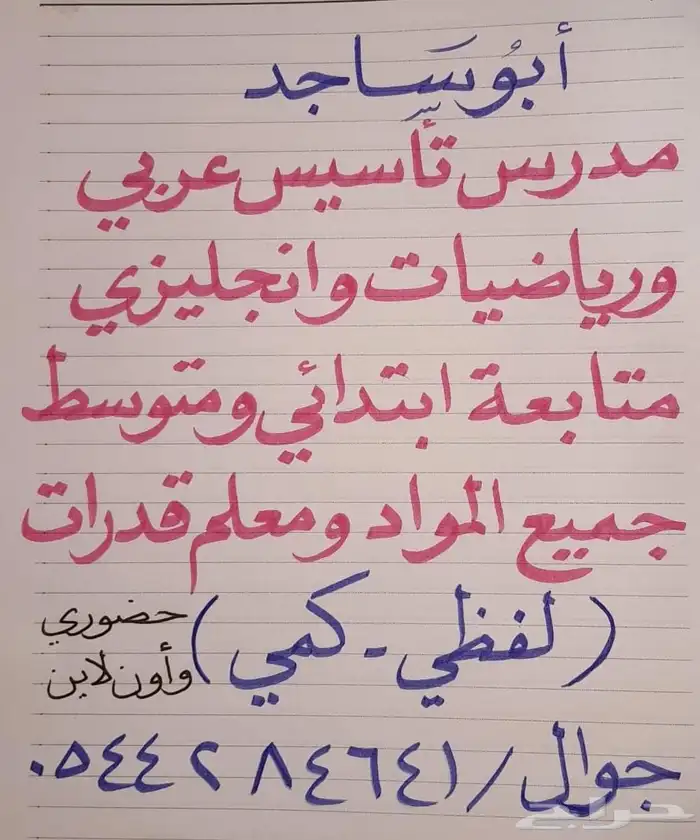 أبُو سَاجد
مدرس تأسيس عربي
ورياضيات وانجليزي
متابعة ابتدائي ومتوسط
جميع المواد ومعلم قدرات
(لفظي - كمي) حضوري
وأون لاين
جوال / ٠٥٤٤٢٨٤٦٤١
حراج